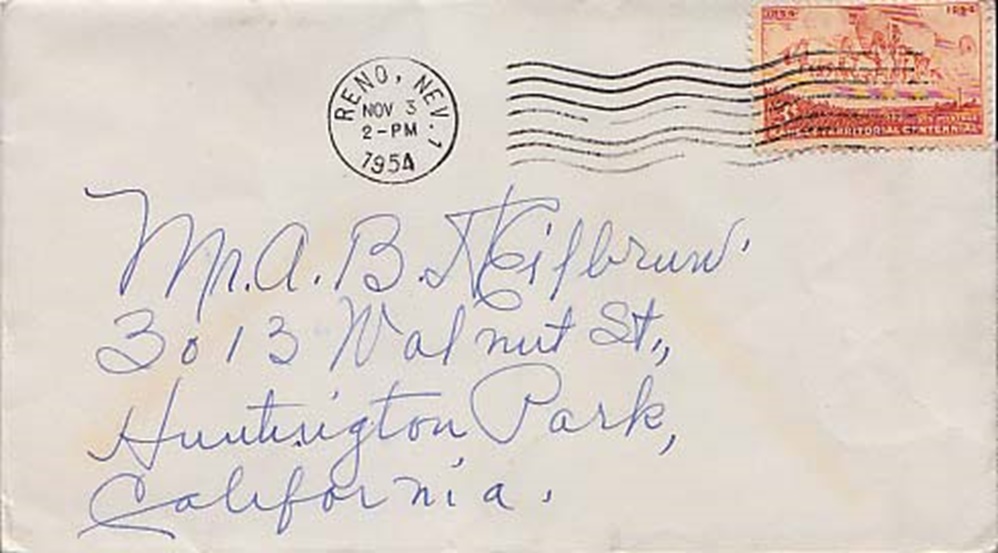 1854 1954
RENO, NEV. 1
NOV 3
2-PM
1954
TERRITORIAL CENTENNIAL
Mr. A. B. Heilbrun.
3013 Walnut St.,
Huntington Park,
California.